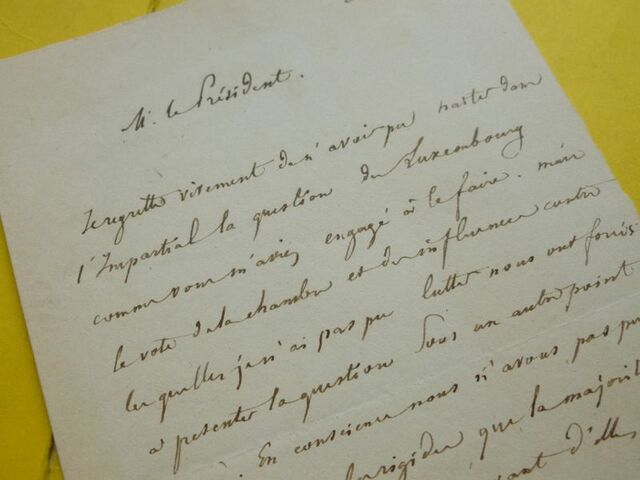 Mr. le Président.
Je regrette vivement de n'avoir pu traiter dans
l'Impartial la question du Luxembourg
comme vous m'aviez engagé à le faire. mais
le vote de la chambre et des influences contre
lesquelles je n'ai pas pu lutter nous ont forcés
a présenter la question sous un autre point
En conscience nous n'avons pas pu
que la majorit
d'elle